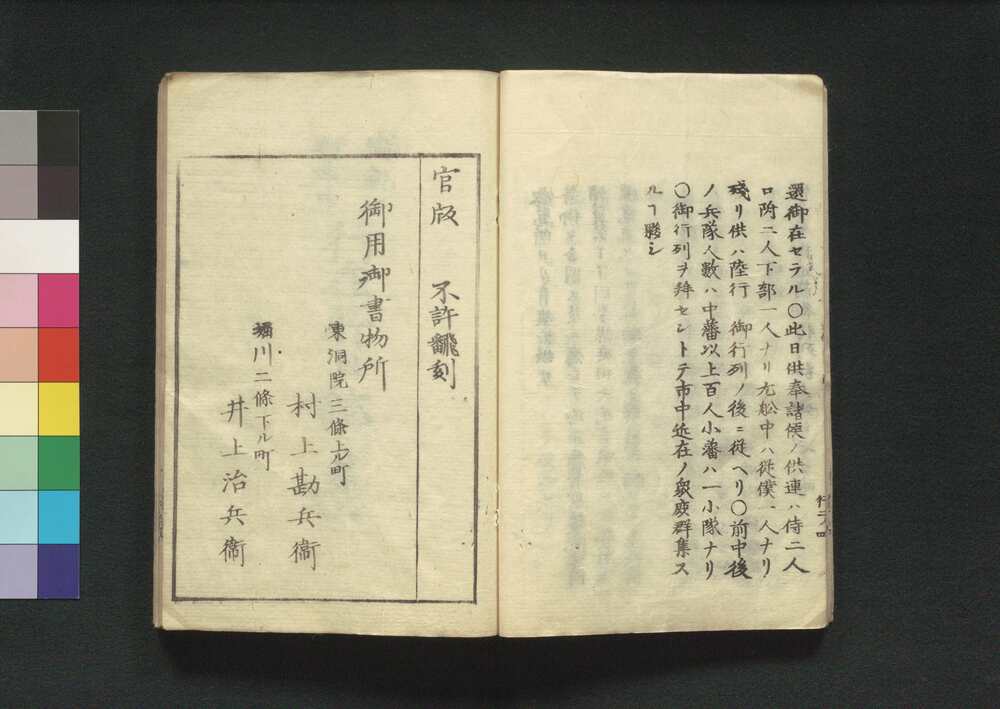 還御在セラル〇此日供奉諸侯ノ供連ハ侍二人
口附二人下部一人ナリ尤舩中ハ従僕一人ナリ
残リ供ハ陸行　御行列ノ後ニ従ヘリ〇前中後
ノ兵隊人数ハ中藩以上百人小藩ハ一小隊ナリ
〇御行列ヲ拜セントテ市中近在ノ衆庶群集ス
ルヿ夥シ
官版　不許飜刻
御用御書物所
東洞院三條上ル町
村上勘兵衞
堀川二條下ル町
井上治兵衞